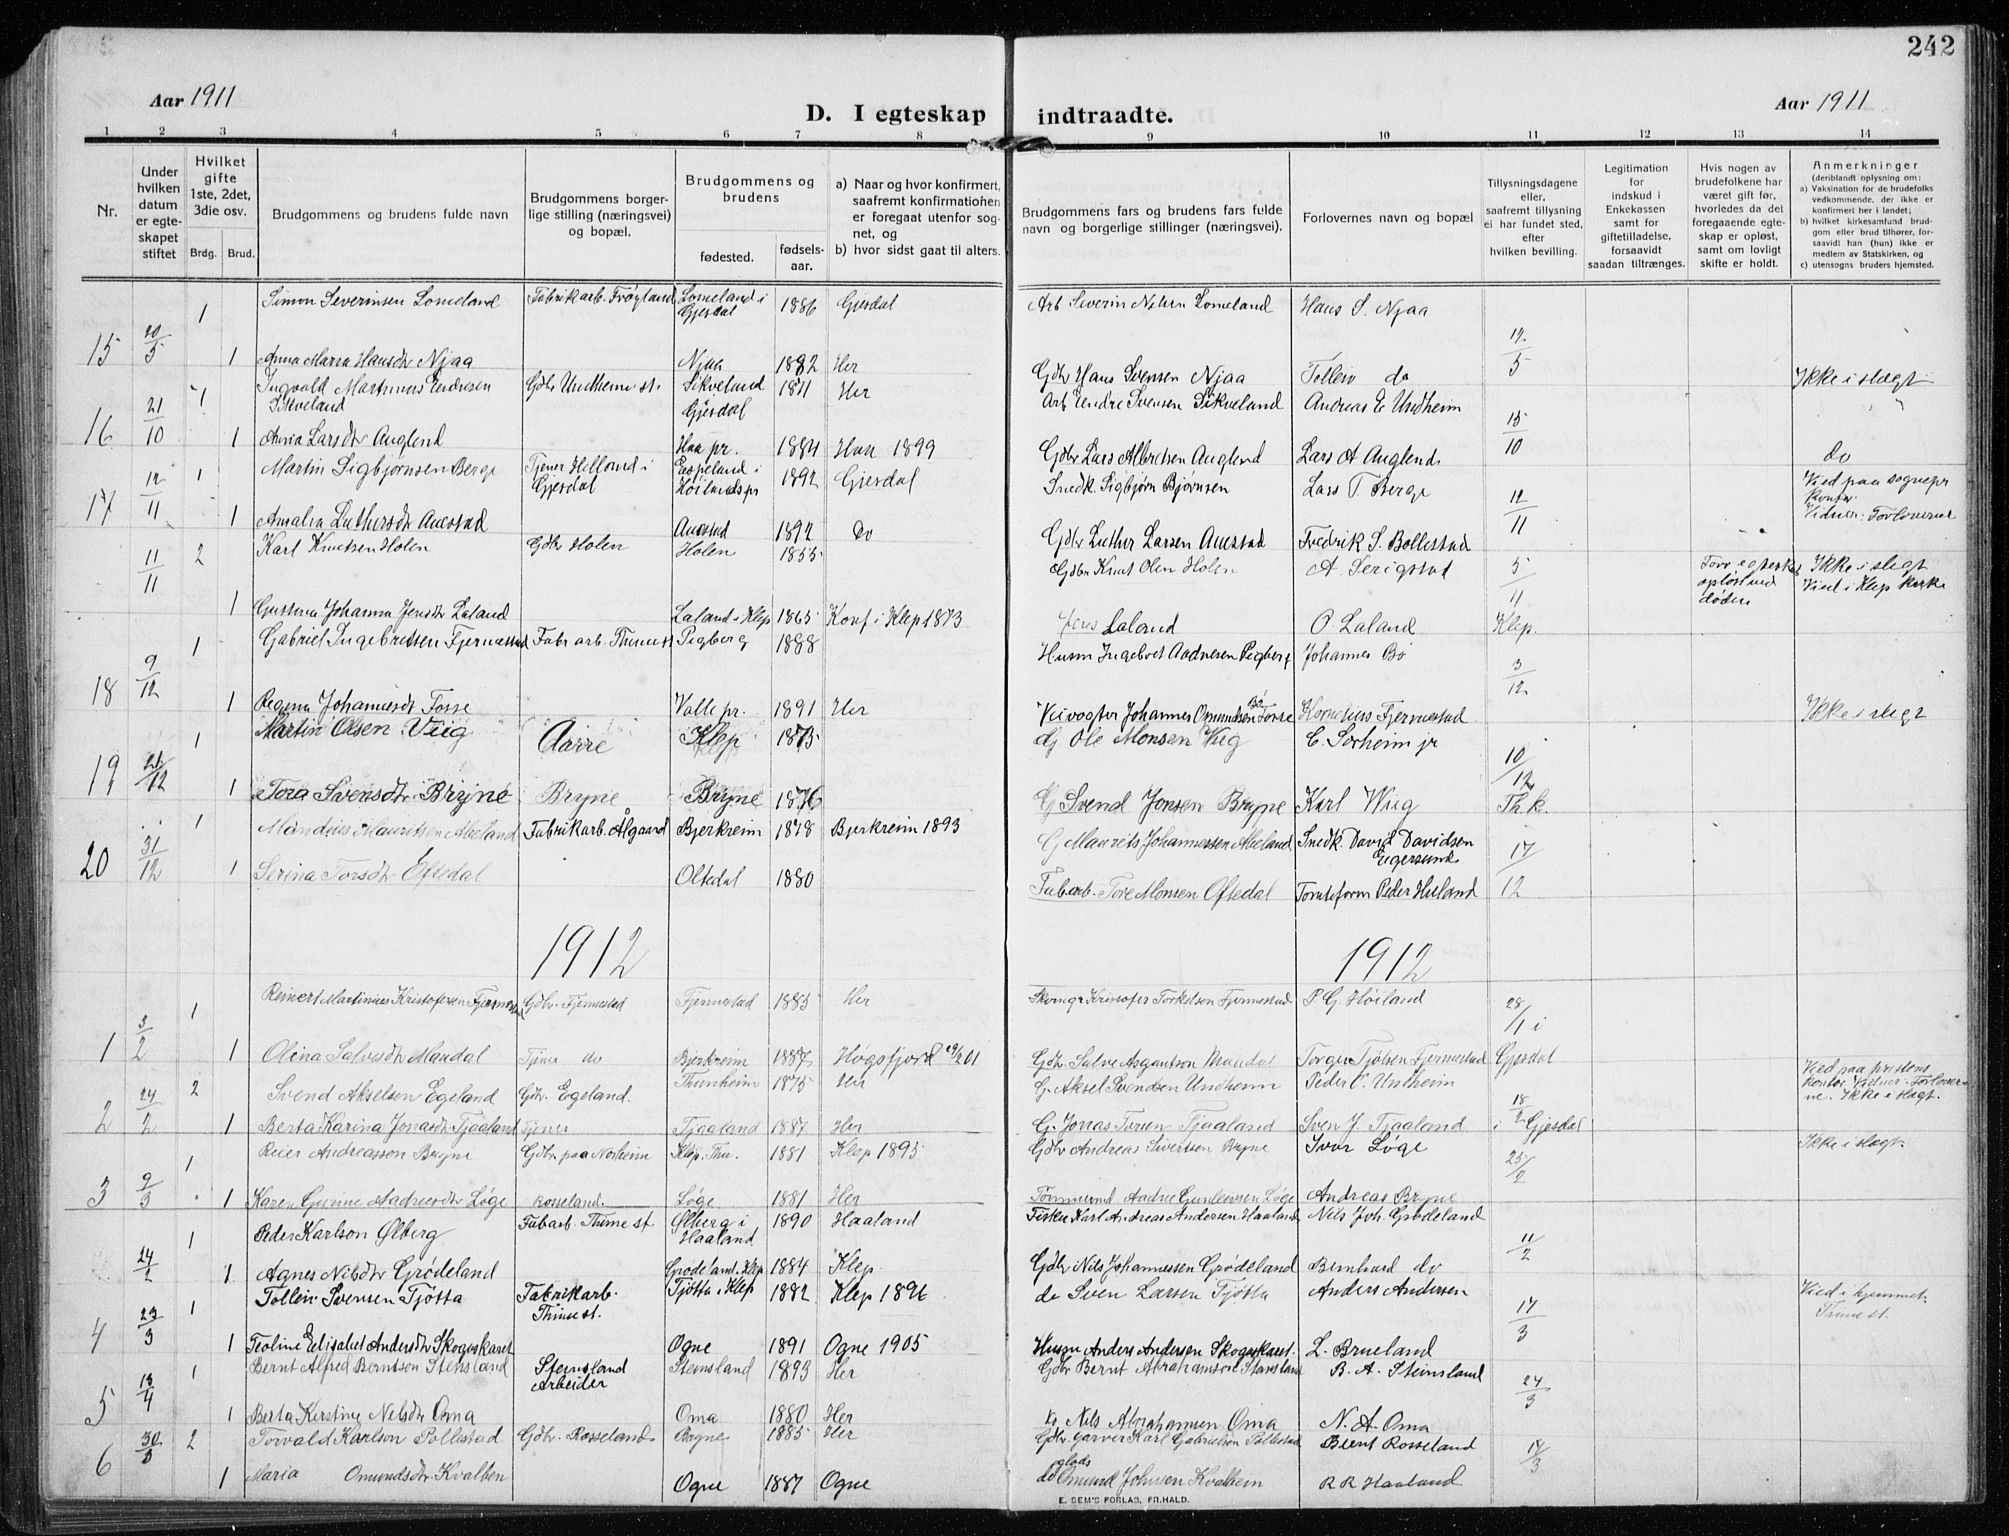 242
Aar 1911
D. I egteskap indtraadte.
Aar 1911
1 2 3 4 5 6 7 8 9 10 11 12 13 14
Nr.
Under hvilken datum er egteskapet stiftet
Hvilket gifte 1ste, 2det, 3die osv.
Brdg. Brud.
Brudgommens og brudens fulde navn
Brudgommens borgerlige stilling (næringsvei) og bopæl.
Brudgommens og brudens
fødested.
fødselsaar.
a) Naar og hvor konfirmert, saafremt konfirmationen er foregaat utenfor sognet, og
b) hvor sidst gaat til alters.
Brudgommens fars og brudens fars fulde navn og borgerlige stillinger (næringsvei).
Forlovernes navn og bopæl
Tillysningsdagene eller, saafremt tillysning ei har fundet sted, efter hvilken bevilling.
Legitimation for indskud i Enkekassen samt for giftetilladelse, forsaavidt saadan tiltrænges.
Hvis nogen av brudefolkene har været gift før, hvorledes da det foregaaende egteskap er opløst, samt om lovligt skifte er holdt.
Anmerkninger (deriblandt oplysning om:
a) Vaksination for de brudefolks vedkommende, der ikke er konfirmert her i landet;
b) hvilket kirkesamfund brudgom eller brud tilhører, forsaavidt han (hun) ikke er medlem av Statskirken, og
c) utensogns bruders hjemsted.
1 Simon Severinsen Lomeland Fabrikarb. Frøyland Lomeland i Gjesdal 1886 Gjesdal Arb Severin Nilsen Lomeland Hans S. Njaa
15 20/5 1 Anna Maria Hansdtr Njaa Njaa 1892 Her Gdbr Hans Svensen Njaa Tolleiv do 14/5 Ikke i slegt
1 Ingvald Martinus Endresen Sikveland Gdbr Undheim st. Sikveland Gjesdal 1871 Her Arb Endre Svensen Sikveland Andreas E Undheim
16 21/10 1 Anna Larsdtr Auglend Haa pr. 1884 Haa 1899 Gdbr Lars Albretsen Auglend Lars A Auglend 15/10 do
1 Martin Sigbjørnsen Berge Tjener Helland i Gjesdal Espeland i Høilands pr 1892 Gjesdal Snedk. Sigbjørn Bjørnsen Lars T. Berge
17 12/11 1 Amalia Luthersdtr Auestad Auestad 1892 Do Gdbr Luther Larsen Auestad Fredrik S. Bollestad 12/11 Vied paa sognepr kontor. Vidner: Forloverne
11/11 2 Karl Knutsen Holen Gdbr Holen Holen 1855 Gdbr Knut Olsen Holen A. Serigstad 5/11 Forr egteskap opløst ved døden Ikke i slegt Vied i Klep kirke
1 Gustava Johanna Jensdtr Laland Laland i Klep 1865 Konf i Klep 1873 Jens Laland O. Laland Klep.
1 Gabriel Ingebretsen Fjermestad Fabr arb. Thime st Pigberg 1888 Husm Ingebret Aadnesen Pigberg Johannes Bø
18 9/12 1 Regina Johannesdtr Fosse Valle pr. 1891 Her Veivogter Johannes Omundsen Fosse Kornelius Fjermestad 3/12 Ikke i slegt
1 Martin Olsen Viig Aarre Klep 1875 Ole Monsen Wiig C. Sørheim jr
19 21/12 1 Tora Svensdtr. Bryne Bryne Bryne 1876 G. Svend Jonsen Bryne Karl Wiig 10/12 Th k.
1 Mandius Mauritsen Abeland Fabrikarb. Ålgaard Bjerkreim 1878 Bjerkreim 1893 G Maurits Johannessen Abeland Snedk. David Davidsen Egersund
20 31/12 1 Serina Torsdtr Oftedal Oltedal 1880 Fabarb. Tore Monsen Oftedal Peder Husland 17/12
1912 1912
1 Reinert Martinius Kristofersen Fjermestad Gdbr. Fjermestad Fjermestad 1885 Her Kristofer Torkelsen Fjermestad P. G. Høiland 28/1 i
1 3/2 1 Olina Salvesdtr Mandal Tjener do Bjerkreim 1887 Høgsfjord 01 Gdbr. Salve Asgautson Mandal Torger Tjølsen Fjermestad Gjesdal
2 Svend Akselsen Egeland Gdbr. Egeland. Thunheim 1875 Her G. Aksel Svendsen Undheim Peder O. Undheim Vied paa prestens kontor. Vidner: Forloverne. Ikke i slegt.
2 24/2 1 Berta Karina Jonasdtr Tjaaland Tjener Tjaaland 1887 Her G. Jonas Torsen Tjaaland Sven J. Tjaaland 18/2 i Gjesdal
1 Reier Andreassen Bryne Gdbr. paa Norheim Klep. Thu. 1881 Klep 1895 Gdbr Andreas Sivertsen Bryne Ivar Løge 25/2 Ikke i slegt.
3 9/3 1 Karen Gurine Aadnesdtr Løge Rosseland. Løge 1881 Her Tømmermd. Aadne Gunleivsen Løge Andreas Bryne
1 Peder Karlson Ølberg Fabarb. Thime st Ølberg i Haaland 1890 Haaland Fisker Karl Andreas Andersen Haaland Nils Joh. Grødeland
24/2 1 Agnes Nilsdtr Grødeland Grødeland. Klep 1884 Klep. Gdbr Nils Johannessen Grødeland Bernhard do 11/2
1 Tolleiv Svensen Tjøtta Fabrikarb. Thime st. Tjøtta i Klep 1882 Klep 1896 do Sven Larsen Tjøtta Anders Andersen Vied i hjemmet. Thime st.
4 23/3 1 Teoline Elisabet Andersdtr Skogeskaret Ogne 1891 Ogne 1905 Husm Anders Andersen Skogeskaret. L. Brueland 17/3
1 Bernt Alfred Berntson Stensland Steinsland Arbeider Steinsland 1893 Her Gdbr Bernt Abrahamson Stensland B. A. Steinsland
5 13/4 1 Berta Kirstine Nilsdtr Oma Oma 1880 Her do Nils Abrahamsen Oma N. A. Oma 24/3
2 Torvald Karlson Pollestad Gdbr. Rosseland Bryne 1885 Her Gdbr. garver Karl Gabrielsen Pollestad Bernt Rosseland
6 30/3 1 Maria Omundsdtr Kvalben Ogne 1887 Ogne do Omund Johnsen Kvalbein R R Haaland 17/3
E. SEM'S FORLAG, FR.HALD.